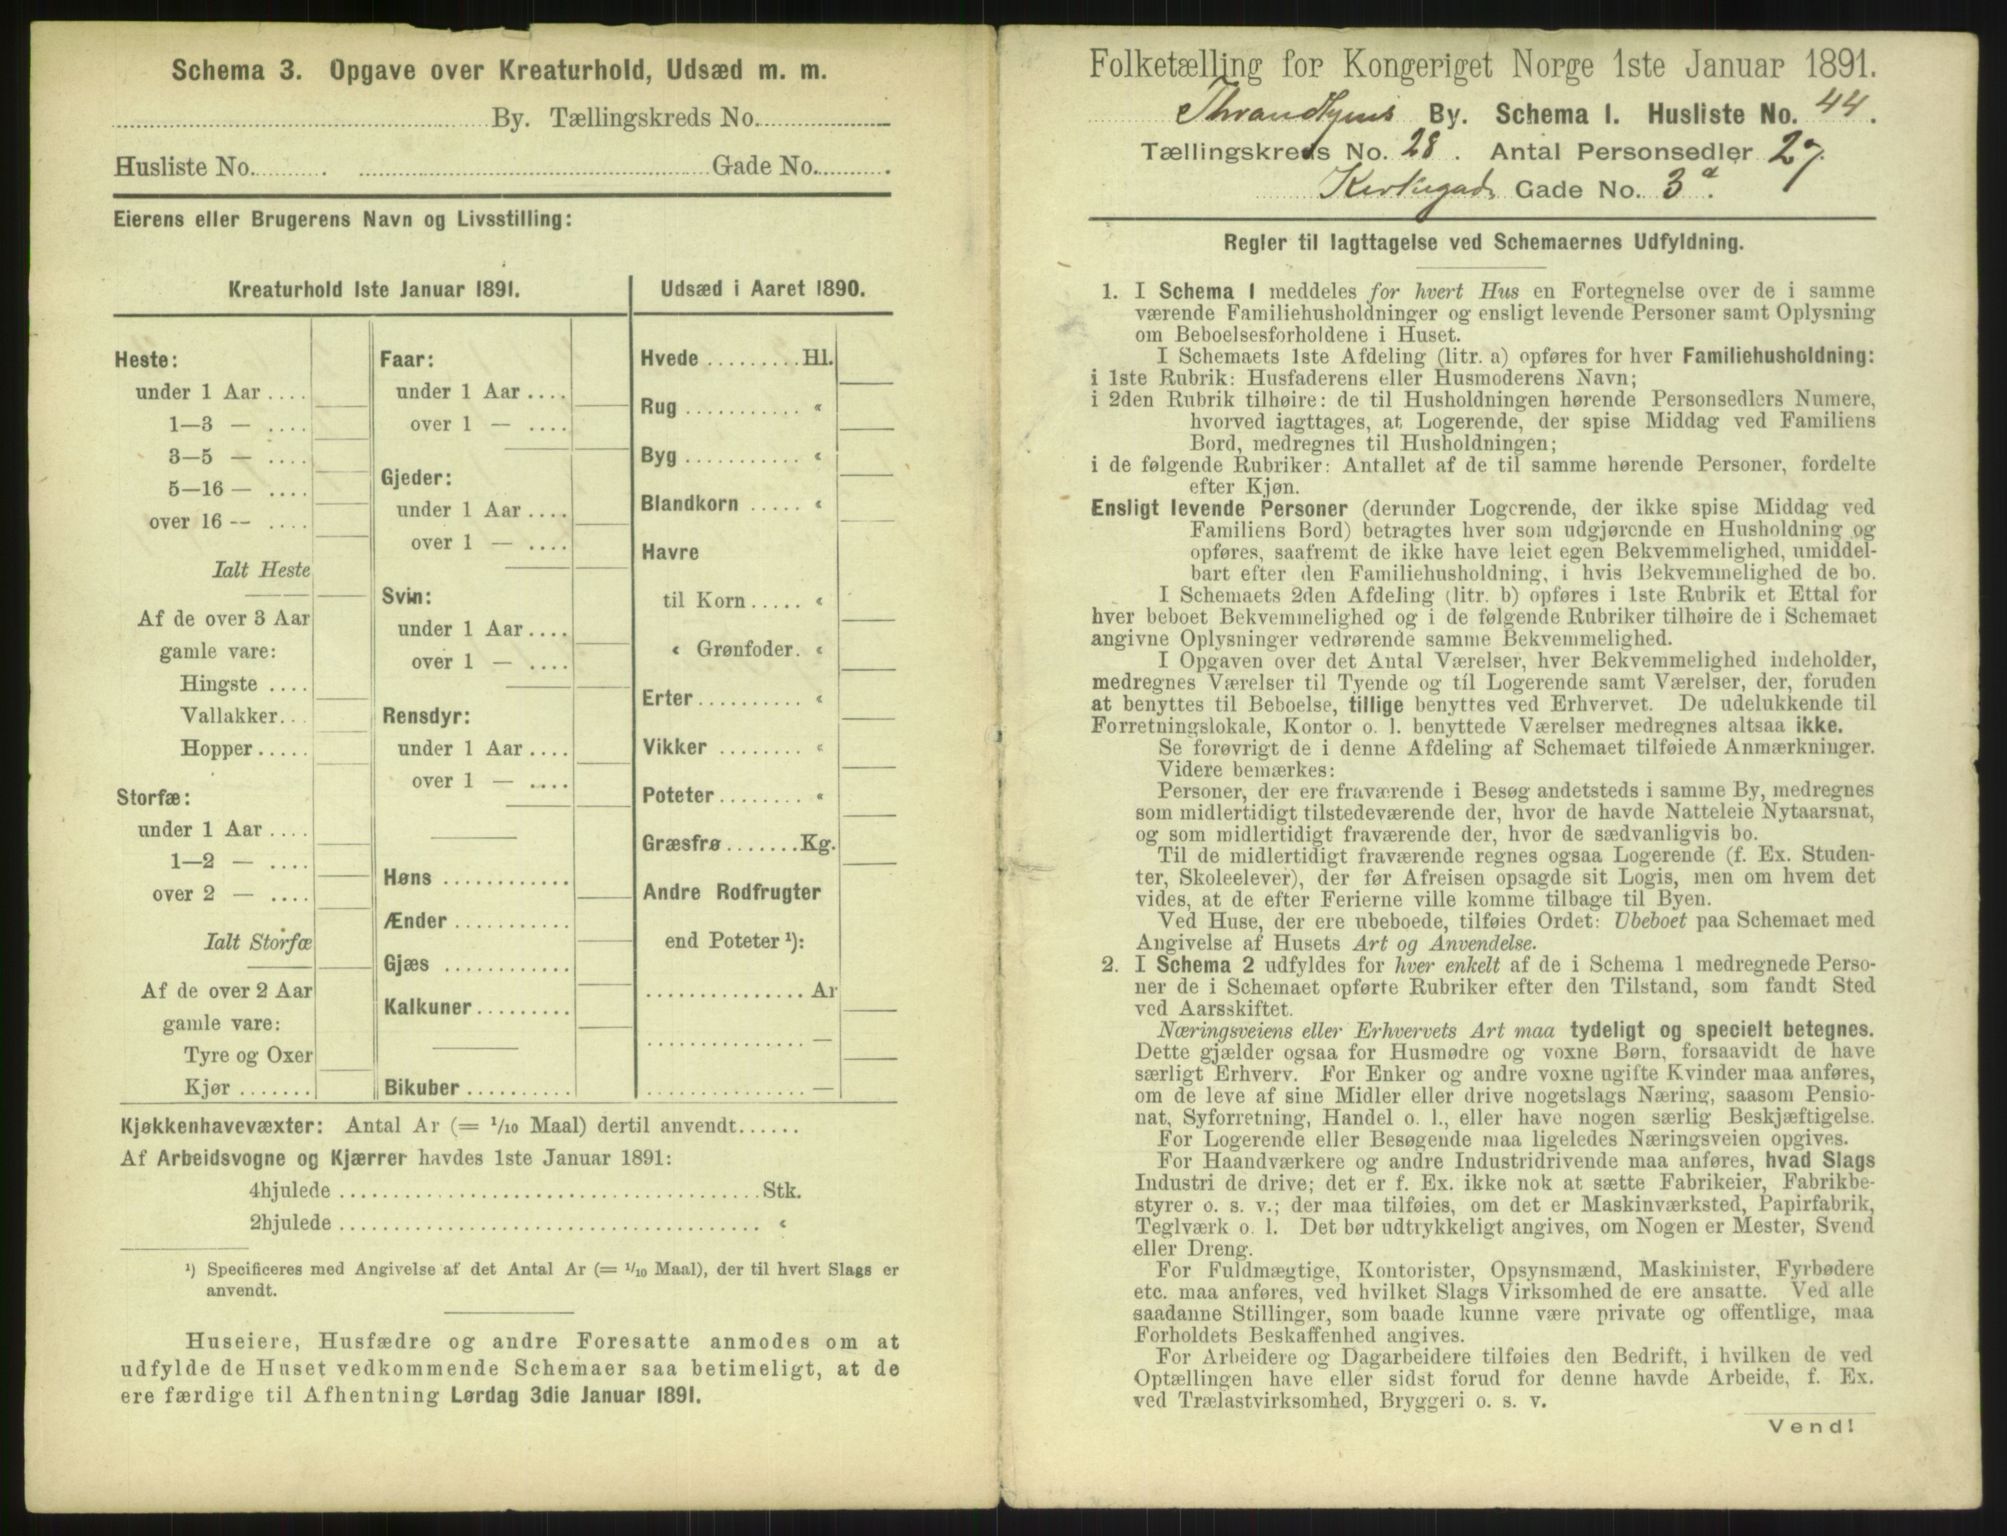 Schema 3. Opgave over Kreaturhold, Udsæd m. m.
By. Tællingskreds No.
Husliste No. Gade No.
Eierens eller Brugerens Navn og Livsstilling:
Kreaturhold 1ste Januar 1891.
Heste:
under 1 Aar ....
1—3 — ....
3—5 — ....
5—16 — ....
over 16 -- ....
Ialt Heste
Af de over 3 Aar
gamle vare:
Hingste ....
Vallakker...
Hopper .....
Storfæ:
under 1 Aar ....
1—2 — ....
over 2 — ....
Ialt Storfæ
Af de over 2 Aar
gamle vare:
Tyre og Oxer
Kjør .......
Faar:
under 1 Aar ....
over 1 — ....
Gjeder:
under 1 Aar ....
over 1 — ....
Svin:
under 1 Aar ....
over 1 — ....
Rensdyr:
under 1 Aar ....
over 1 — ....
Høns ............
Ænder ...........
Gjæs ............
Kalkuner.........
Bikuber ..........
Udsæd i Aaret 1890.
Hvede .........Hl.
Rug ........... «
Byg ........... «
Blandkorn ..... «
Havre
til Korn..... «
« Grønfoder. «
Erter.......... «
Vikker ........ «
Poteter........ «
Græsfrø .......Kg.
Andre Rodfrugter
end Poteter ¹):
............... Ar
............... —
............... —
Kjøkkenhavevæxter: Antal Ar (= 1/10 Maal) dertil anvendt......
Af Arbeidsvogne og Kjærrer havdes 1ste Januar 1891:
4hjulede ........................................ Stk.
2hjulede ........................................ «
¹) Specificeres med Angivelse af det Antal Ar (= 1/10 Maal), der til hvert Slags er
anvendt.
Huseiere, Husfædre og andre Foresatte anmodes om at
udfylde de Huset vedkommende Schemaer saa betimeligt, at de
ere færdige til Afhentning Lørdag 3die Januar 1891.
Folketælling for Kongeriget Norge 1ste Januar 1891.
Thrandhjems By. Schema I. Husliste No. 44.
Tællingskreds No. 28. Antal Personsedler 27.
Kirkegad. Gade No. 3a.
Regler til Iagttagelse ved Schemaernes Udfyldning.
1. I Schema 1 meddeles for hvert Hus en Fortegnelse over de i samme
værende Familiehusholdninger og ensligt levende Personer samt Oplysning
om Beboelsesforholdene i Huset.
I Schemaets 1ste Afdeling (litr. a) opføres for hver Familiehusholdning:
i 1ste Rubrik: Husfaderens eller Husmoderens Navn;
i 2den Rubrik tilhøire: de til Husholdningen hørende Personsedlers Numere,
hvorved iagttages, at Logerende, der spise Middag ved Familiens
Bord, medregnes til Husholdningen;
i de følgende Rubriker: Antallet af de til samme hørende Personer, fordelte
efter Kjøn.
Ensligt levende Personer (derunder Logerende, der ikke spise Middag ved
Familiens Bord) betragtes hver som udgjørende en Husholdning og
opføres, saafremt de ikke have leiet egen Bekvemmelighed, umiddel-
bart efter den Familiehusholdning, i hvis Bekvemmelighed de bo.
I Schemaets 2den Afdeling (litr. b) opføres i 1ste Rubrik et Ettal for
hver beboet Bekvemmelighed og i de følgende Rubriker tilhøire de i Schemaet
angivne Oplysninger vedrørende samme Bekvemmelighed.
I Opgaven over det Antal Værelser, hver Bekvemmelighed indeholder,
medregnes Værelser til Tyende og til Logerende samt Værelser, der, foruden
at benyttes til Beboelse, tillige benyttes ved Erhvervet. De udelukkende til
Forretningslokale, Kontor o. l. benyttede Værelser medregnes altsaa ikke.
Se forøvrigt de i denne Afdeling af Schemaet tilføiede Anmærkninger.
Videre bemærkes:
Personer, der ere fraværende i Besøg andetsteds i samme By, medregnes
som midlertidigt tilstedeværende der, hvor de havde Natteleie Nytaarsnat,
og som midlertidigt fraværende der, hvor de sædvanligvis bo.
Til de midlertidigt fraværende regnes ogsaa Logerende (f. Ex. Studen-
ter, Skoleelever), der før Afreisen opsagde sit Logis, men om hvem det
vides, at de efter Ferierne ville komme tilbage til Byen.
Ved Huse, der ere ubeboede, tilføies Ordet: Ubeboet paa Schemaet med
Angivelse af Husets Art og Anvendelse.
2. I Schema 2 udfyldes for hver enkelt af de i Schema 1 medregnede Perso-
ner de i Schemaet opførte Rubriker efter den Tilstand, som fandt Sted
ved Aarsskiftet.
Næringsveiens eller Erhvervets Art maa tydeligt og specielt betegnes.
Dette gjælder ogsaa for Husmødre og voxne Børn, forsaavidt de have
særligt Erhverv. For Enker og andre voxne ugifte Kvinder maa anføres,
om de leve af sine Midler eller drive nogetslags Næring, saasom Pensio-
nat, Syforretning, Handel o. l., eller have nogen særlig Beskjæftigelse.
For Logerende eller Besøgende maa ligeledes Næringsveien opgives.
For Haandværkere og andre Industridrivende maa anføres, hvad Slags
Industri de drive; det er f. Ex. ikke nok at sætte Fabrikeier, Fabrikbe-
styrer o. s. v.; der maa tilføies, om det er Maskinværksted, Papirfabrik,
Teglværk o. l. Det bør udtrykkeligt angives, om Nogen er Mester, Svend
eller Dreng.
For Fuldmægtige, Kontorister, Opsynsmænd, Maskinister, Fyrbødere
etc. maa anføres, ved hvilket Slags Virksomhed de ere ansatte. Ved alle
saadanne Stillinger, som baade kunne være private og offentlige, maa
Forholdets Beskaffenhed angives.
For Arbeidere og Dagarbeidere tilføies den Bedrift, i hvilken de ved
Optællingen have eller sidst forud for denne havde Arbeide, f. Ex.
ved Trælastvirksomhed, Bryggeri o. s. v.
Vend!